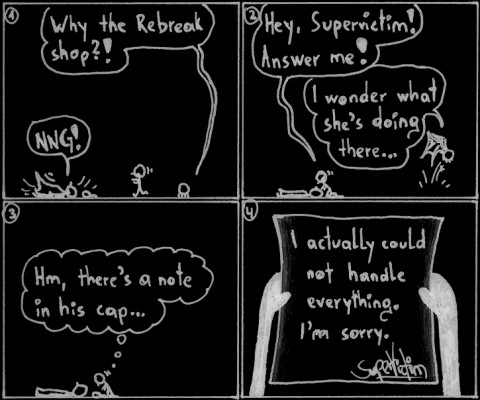 1
Why the Rebreak
shop?!
NNG!
2
Hey, Supervictim!
Answer me!
I wonder what
she's doing
there...
3
Hm, there's a note
in his cap...
4
I actually could
not handle
everything.
I'm sorry.
SuperVictim